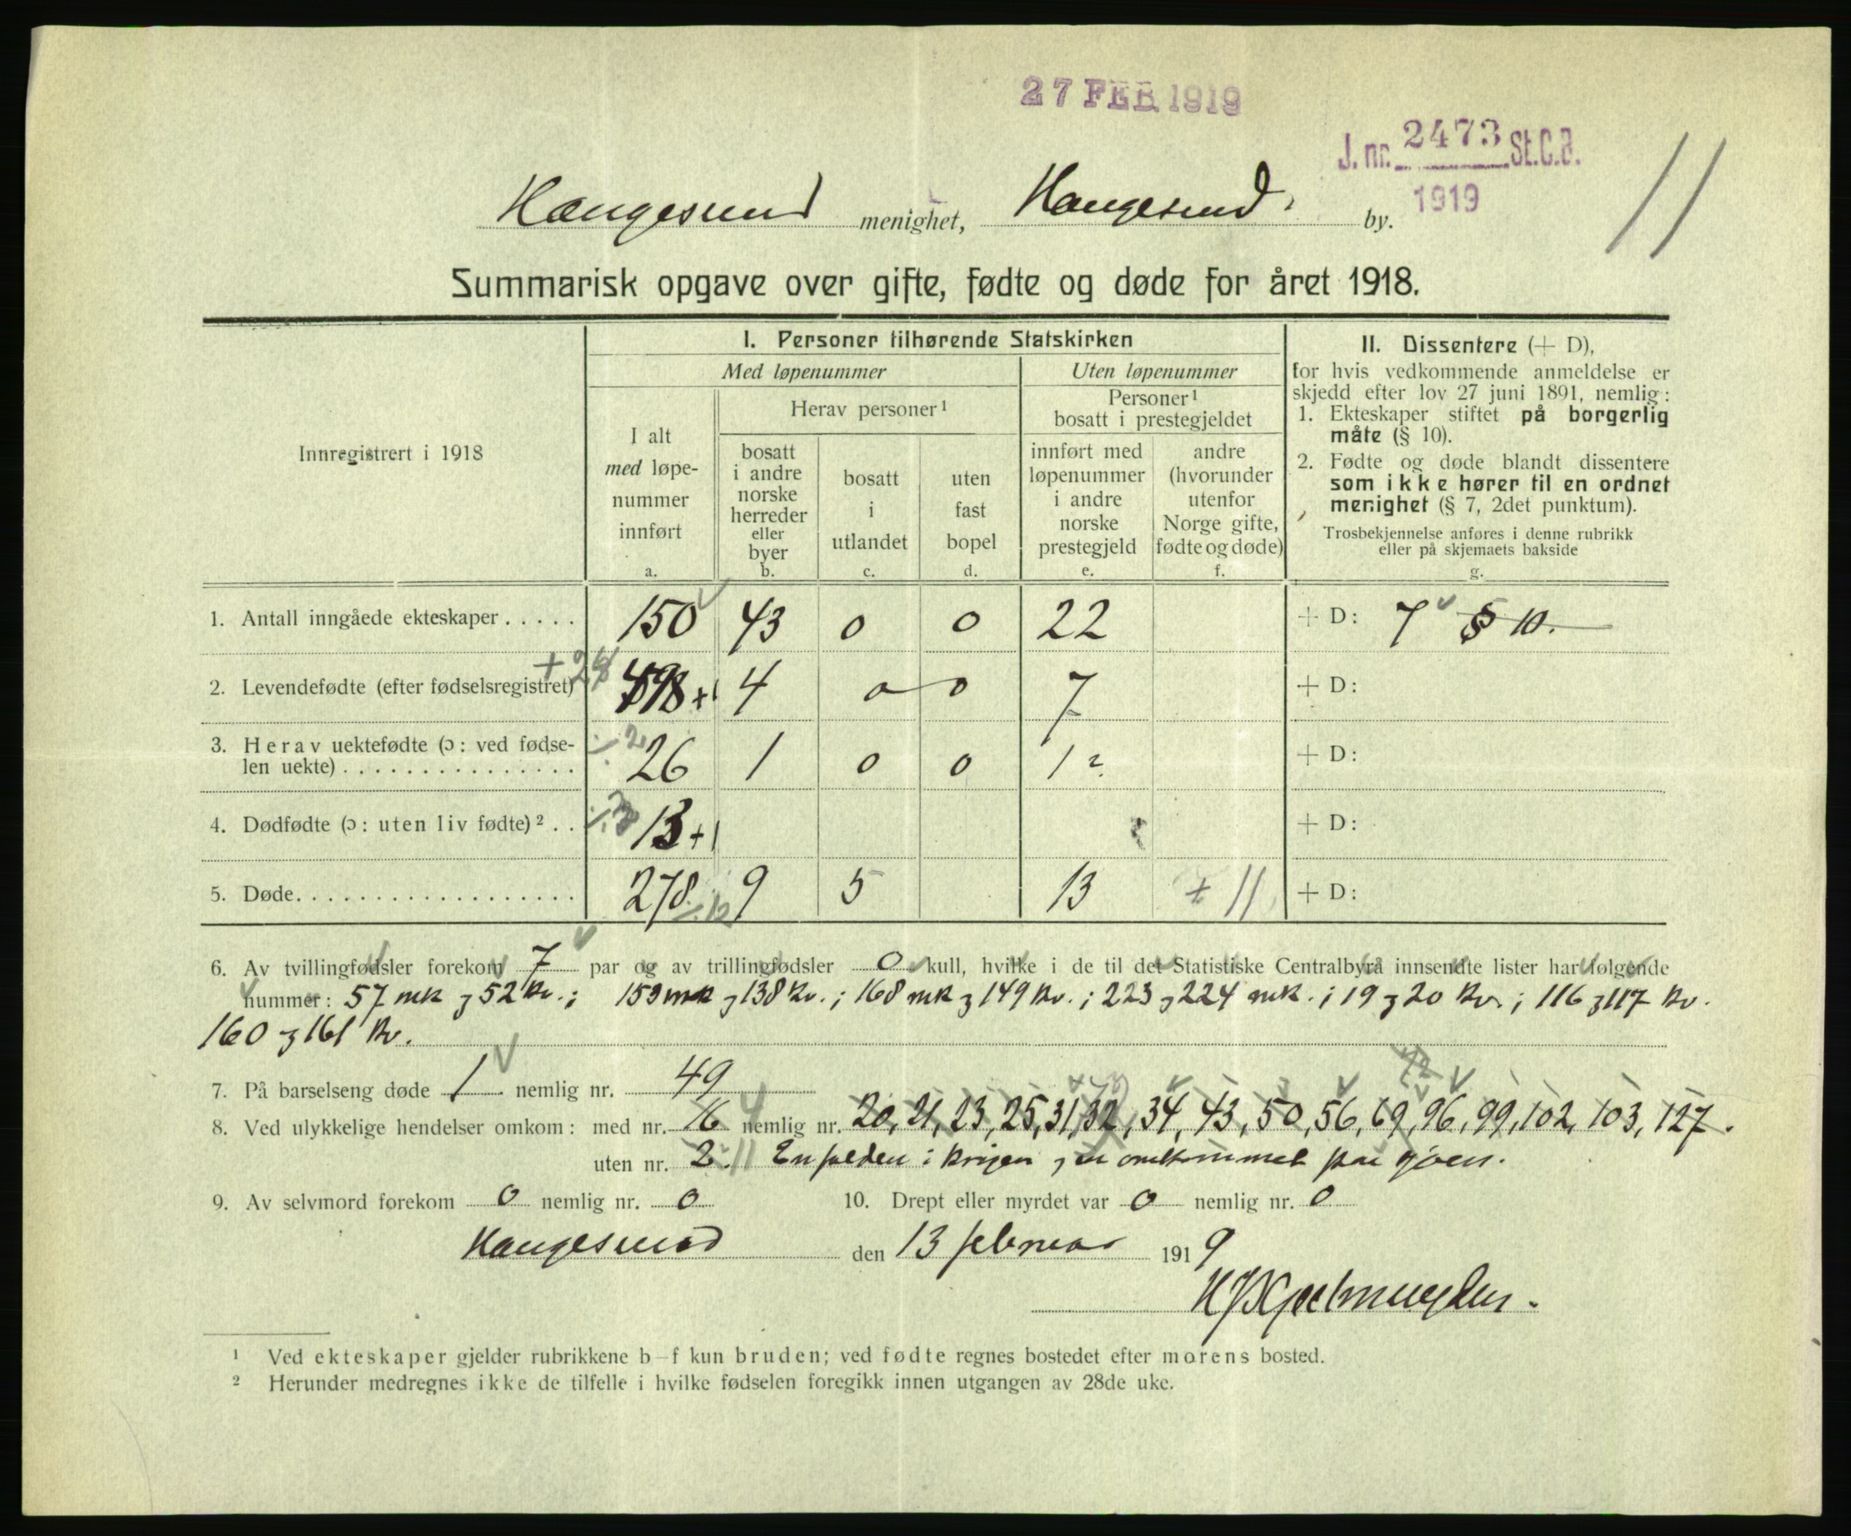 27 FEB 1919
J. nr. 2473 St.C.B.
1919
11
Haugesund menighet, Haugesund by.
Summarisk opgave over gifte, fødte og døde for året 1918.
Innregistrert i 1918
I. Personer tilhørende Statskirken
Med løpenummer
Uten løpenummer
I alt
med løpe-
nummer
innført
a.
Herav personer¹
bosatt
i andre
norske
herreder
eller
byer
b.
bosatt
i
utlandet
c.
uten
fast
bopel
d.
Personer¹
bosatt i prestegjeldet
innført med
løpenummer
i andre
norske
prestegjeld
e.
andre
(hvorunder
utenfor
Norge gifte,
fødte og døde)
f.
II. Dissentere (+ D),
for hvis vedkommende anmeldelse er
skjedd efter lov 27 juni 1891, nemlig:
1. Ekteskaper stiftet på borgerlig
måte (§ 10).
2. Fødte og døde blandt dissentere
som ikke hører til en ordnet
menighet (§ 7, 2det punktum).
Trosbekjennelse anføres i denne rubrikk
eller på skjemaets bakside
g.
1. Antall inngåede ekteskaper . . . . . 150 43 0 0 22 + D: 7 § 10.
2. Levendefødte (efter fødselsregistret) 498 +1 4 0 0 7 + D:
3. Herav uektefødte (ɔ: ved fødse-
len uekte) . . . . . . . . . . . . . . . ÷2 26 1 0 0 1 + D:
4. Dødfødte (ɔ: uten liv fødte)² . . 13 +1 + D:
5. Døde. . . . . . . . . . . . . . . . . . 278 9 5 13 + 11 + D:
6. Av tvillingfødsler forekom 7 par og av trillingfødsler 0 kull, hvilke i de til det Statistiske Centralbyrå innsendte lister har følgende
nummer: 57 mk og 52 kv.; 153 mk og 138 kv.; 168 mk og 149 kv.; 223 og 224 mk.; 19 og 20 kv.; 116 og 117 kv.
160 og 161 kv.
7. På barselseng døde 1 nemlig nr. 49
8. Ved ulykkelige hendelser omkom: med nr. 16 nemlig nr. 20, 21, 23, 25, 31, 32, 34, 43, 50, 56, 69, 96, 99, 102, 103, 127.
uten nr. 2. 11 En falden i krigen og en omkommet paa sjøen.
9. Av selvmord forekom 0 nemlig nr. 0 10. Drept eller myrdet var 0 nemlig nr. 0
Haugesund den 13 februar 1919
¹ Ved ekteskaper gjelder rubrikkene b–f kun bruden; ved fødte regnes bostedet efter morens bosted.
² Herunder medregnes ikke de tilfelle i hvilke fødselen foregikk innen utgangen av 28de uke.